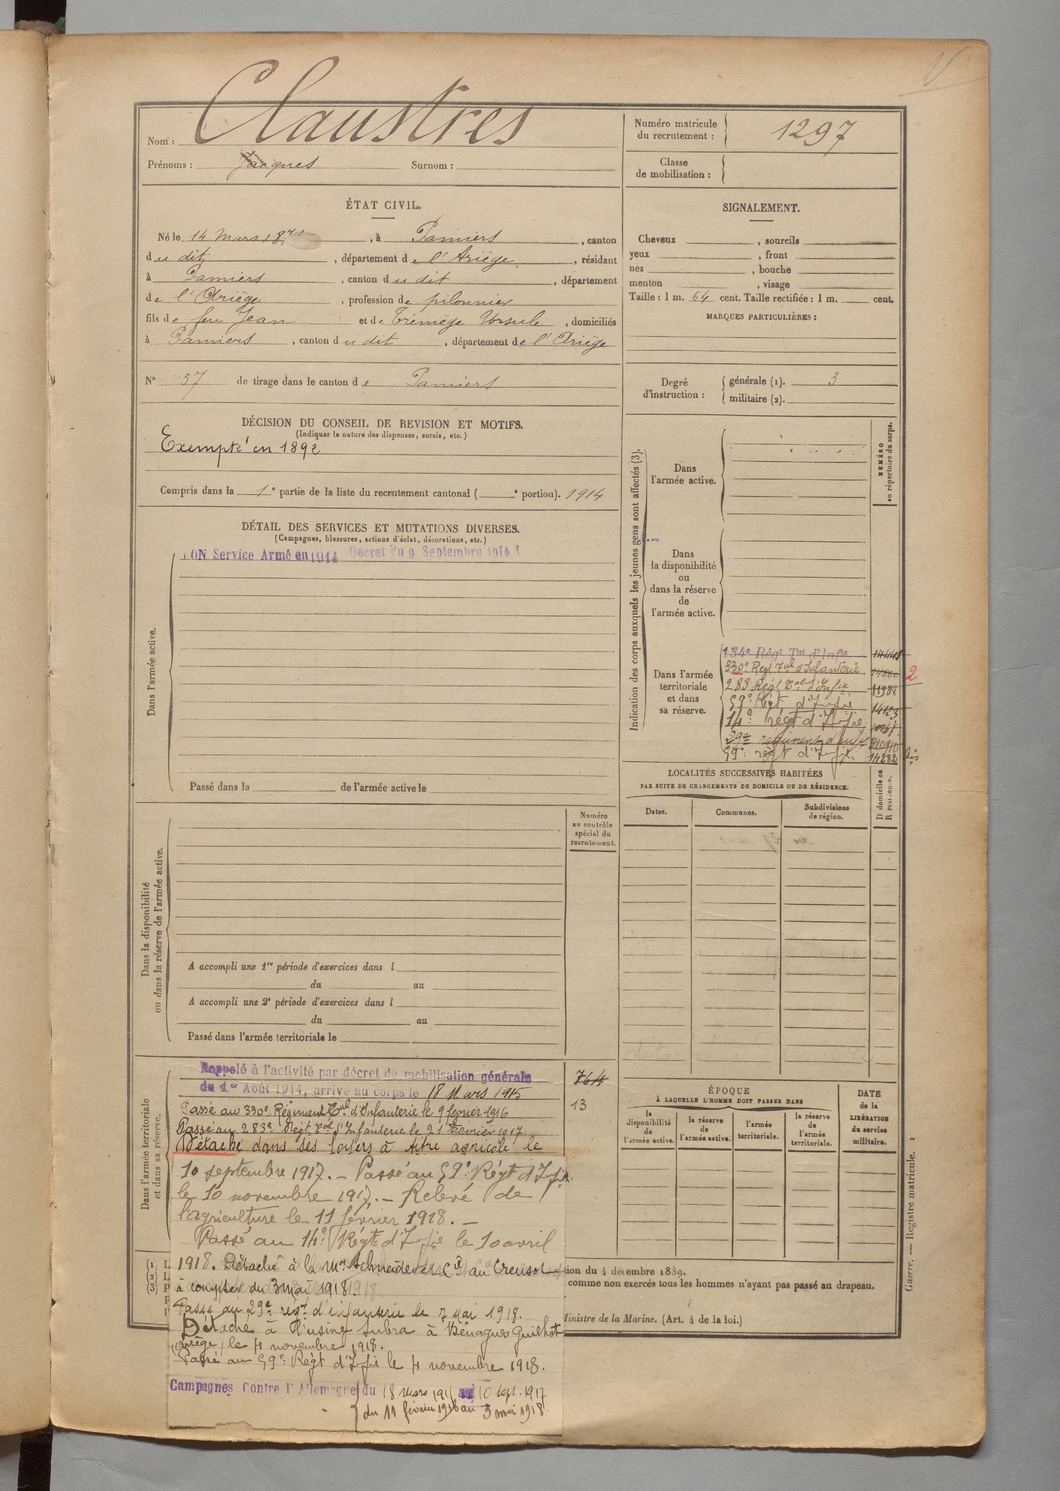 Nom : Claustres
Prénoms : Jacques Surnom :
Numéro matricule du recrutement : 1297
Classe de mobilisation :
ÉTAT CIVIL.
Né le 14 Mars 187 , à Pamiers , canton
du dit , département de l'Ariège , résidant
à Pamiers , canton du dit , département
de l'Ariège , profession de pilonnier
fils de feu Jean et de Trémège Ursule , domiciliés
à Pamiers , canton du dit , département de l'Ariège
N° 57 de tirage dans le canton de Pamiers
SIGNALEMENT.
Cheveux , sourcils
yeux , front
nez , bouche
menton , visage
Taille : 1 m. 64 cent. Taille rectifiée : 1 m. cent.
MARQUES PARTICULIÈRES :
Degré d'instruction : générale (1). 3
militaire (2).
DÉCISION DU CONSEIL DE REVISION ET MOTIFS.
(Indiquer la nature des dispenses, sursis, etc.)
Exempté en 1892
Compris dans la 1e partie de la liste du recrutement cantonal ( e portion). 1914
DÉTAIL DES SERVICES ET MUTATIONS DIVERSES.
(Campagnes, blessures, actions d'éclat, décorations, etc.)
ON Service Armé en 1914 Décret du 9 Septembre 1914
Dans l'armée active.
Passé dans la de l'armée active le
Indication des corps auxquels les jeunes gens sont affectés (3).
NUMÉRO au répertoire du corps.
Dans l'armée active.
Dans la disponibilité ou dans la réserve de l'armée active.
Dans l'armée territoriale et dans sa réserve.
134e Régt Tal d'Infie
330e Regt Tal d'Infanterie
283 Régt Tal d'Infie
59e Régt d'Infie
14e régt d'Infie
29e regiment d'inf
59e régt d'Infie
2
LOCALITÉS SUCCESSIVES HABITÉES
PAR SUITE DE CHANGEMENTS DE DOMICILE OU DE RÉSIDENCE.
Dates. Communes. Subdivisions de région.
D domicile ou R résidence.
Numéro au contrôle spécial du recrutement.
Dans la disponibilité ou dans la réserve de l'armée active.
A accompli une 1re période d'exercices dans l
du au
A accompli une 2e période d'exercices dans l
du au
Passé dans l'armée territoriale le
Dans l'armée territoriale et dans sa réserve.
Rappelé à l'activité par décret de mobilisation générale
du 1er Août 1914, arrivé au corps le 18 Mars 1915
764
13
Passé au 330e Régiment Tal d'Infanterie le 9 février 1916
Passé au 283e Régt Tal d'Infanterie le 21 Février 1917
Détaché dans ses foyers à titre agricole le
10 septembre 1917. – Passé au 59e Régt d'Infie
le 10 novembre 1917. – Relevé de
l'agriculture le 11 février 1918. –
Passé au 14e Régt d'Infie le 10 avril
1918. Détaché à la Schneider et Cie au Creusot
à compter du 3 mai 1918
Passé au 29e regt d'infanterie le 7 Mai 1918.
Détaché à l'usine Subra à Bénagues Guilhot
(Ariège) le 4 novembre 1918.
Passé au 59e Régt d'Infie le 4 novembre 1918.
Campagnes Contre l'Allemagne du 18 mars 191 au 10 sept. 1917
du 11 février 1918 au 3 mai 1918.
ÉPOQUE
À LAQUELLE L'HOMME DOIT PASSER DANS
la disponibilité de l'armée active.
la réserve de l'armée active.
l'armée territoriale.
la réserve de l'armée territoriale.
DATE de la LIBÉRATION du service militaire.
ion du 4 décembre 1889.
comme non exercés tous les hommes n'ayant pas passé au drapeau.
Ministre de la Marine. (Art. 4 de la loi.)
Guerre. — Registre matricule. 1